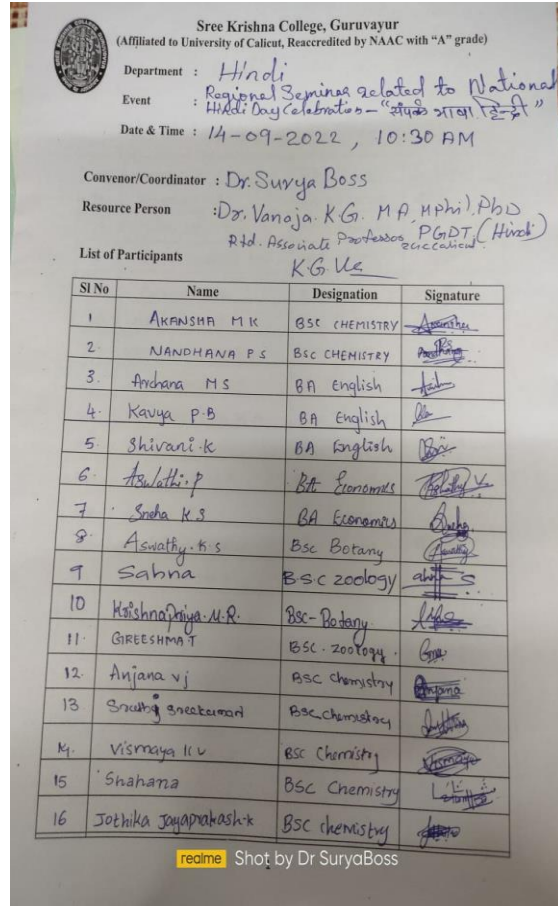 Sree Krishna College, Guruvayur
(Affiliated to University of Calicut, Reaccredited by NAAC with “A” grade)
Department : Hindi
Event : Regional Seminar related to National
Hindi Day Celebration – "संपर्क भाषा हिन्दी"
Date & Time : 14-09-2022, 10:30 AM
Convenor/Coordinator : Dr. Surya Boss
Resource Person : Dr. Vanaja. K.G. MA, MPhil, PhD
Rtd. Associate Professor, PGDT, (Hindi)
List of Participants
K.G.
Sl No Name Designation Signature
1 AKANSHA M K BSC CHEMISTRY
2. NANDHANA P S BSC CHEMISTRY
3. Archana MS BA English
4. Kavya P.B BA English
5. Shivani.K BA English
6. Aswathi.P BA Economics
7 Sneha K.S BA Economics
8. Aswathy.K.S Bsc Botany
9 Sabna B.S.C zoology
10 Krishnapriya.M.R. BSC-Botany
11. GREESHMA.T BSC. zoology.
12. Anjana vj BSC Chemistry Anjana
13 Sreekumar BSC Chemistry
14. Vismaya K V BSC Chemistry Vismaya
15 Shahana BSC Chemistry
16 Jothika Jayaprakash.k BSC chemistry
realme Shot by Dr SuryaBoss